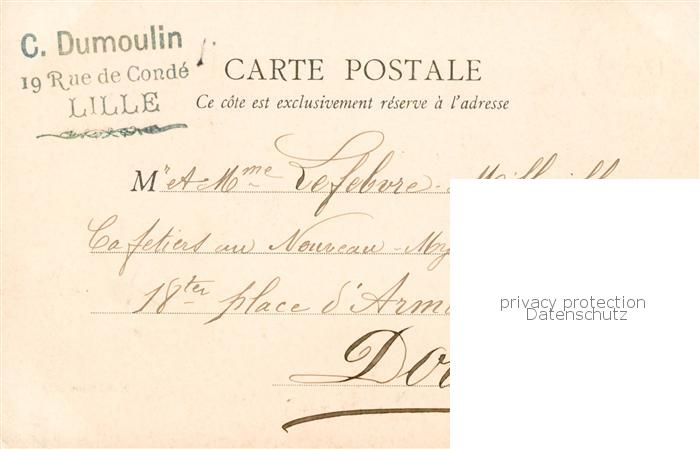 C. Dumoulin
19 Rue de Condé
LILLE
CARTE POSTALE
Ce côte est exclusivement réserve à l'adresse
Mr et Mme Lefebvre-
Cafetiers au Nouveau-
18ter place d'Arm
Do
privacy protection
Datenschutz